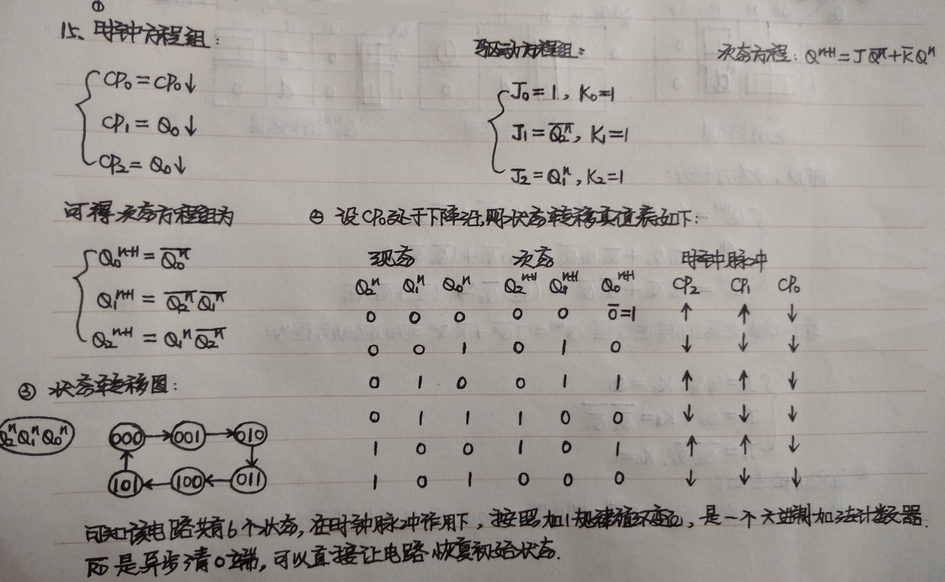 ①
15、时钟方程组：
CP₀=CP₀↓
CP₁=Q₀↓
CP₂=Q₀↓
驱动方程组：
J₀=1, K₀=1
J₁=\overline{Q₂ⁿ}, K₁=1
J₂=Q₁ⁿ, K₂=1
次态方程：Qⁿ⁺¹=J\overline{Qⁿ}+\overline{K}Qⁿ
可得次态方程组为
Q₀ⁿ⁺¹=\overline{Q₀ⁿ}
Q₁ⁿ⁺¹=\overline{Q₂ⁿ} \overline{Q₁ⁿ}
Q₂ⁿ⁺¹=Q₁ⁿ\overline{Q₂ⁿ}
② 设CP₀处于下降沿，则状态转移真值表如下：
现态 次态 时钟脉冲
Q₂ⁿ Q₁ⁿ Q₀ⁿ Q₂ⁿ⁺¹ Q₁ⁿ⁺¹ Q₀ⁿ⁺¹ CP₂ CP₁ CP₀
0 0 0 0 0 \overline{0}=1 ↑ ↑ ↓
0 0 1 0 1 0 ↓ ↓ ↓
0 1 0 0 1 1 ↑ ↑ ↓
0 1 1 1 0 0 ↓ ↓ ↓
1 0 0 1 0 1 ↑ ↑ ↓
1 0 1 0 0 0 ↓ ↓ ↓
③ 状态转移图：
Q₂ⁿQ₁ⁿQ₀ⁿ
000→001→010
101←100←011
可知该电路共有6个状态，在时钟脉冲作用下，按照加1规律循环变化，是一个六进制加法计数器.
\overline{R_D}是异步清0端，可以直接让电路恢复初始状态.